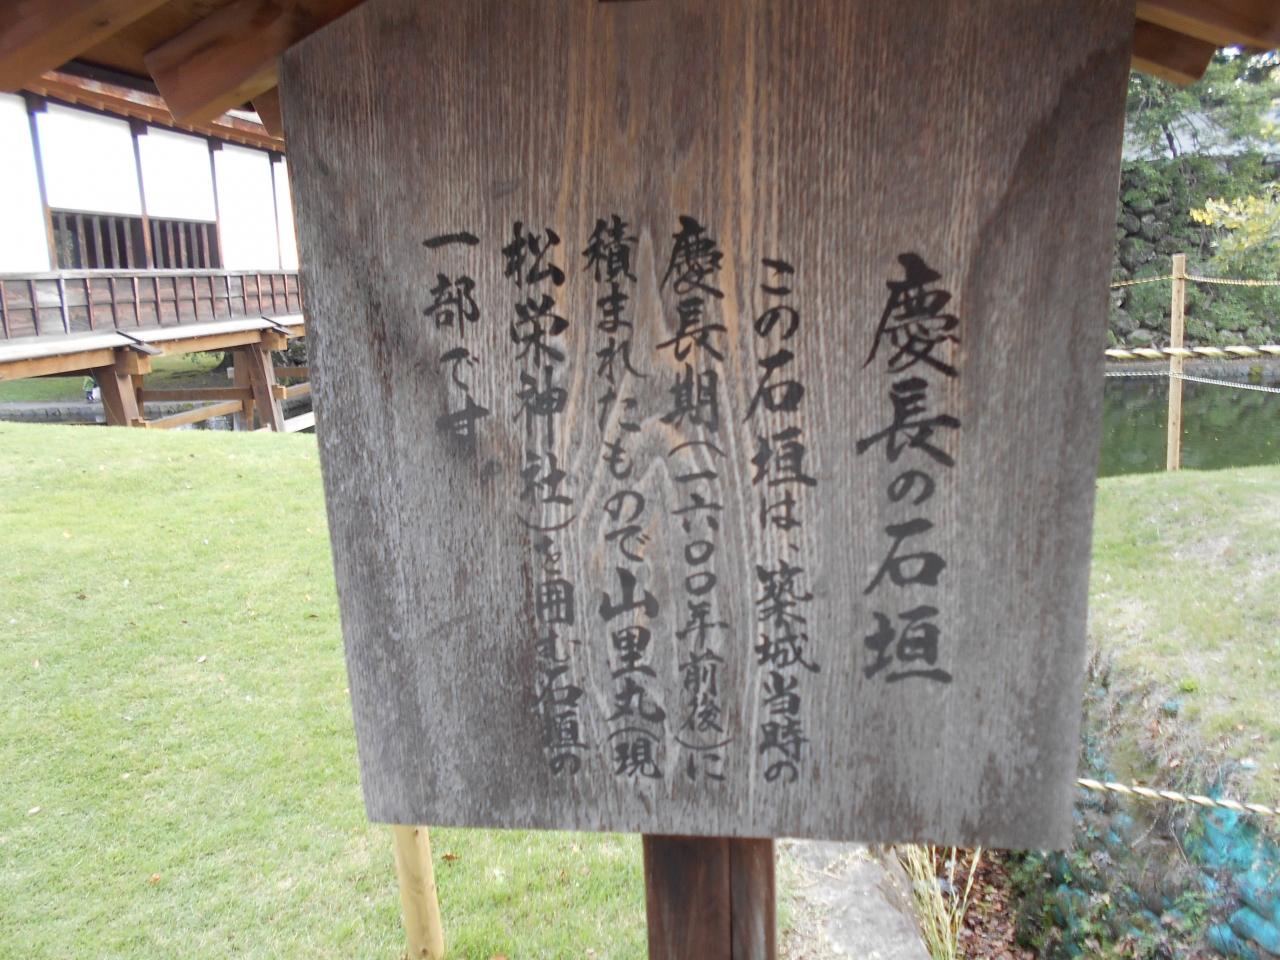 慶長の石垣
この石垣は、築城当時の
慶長期(一六〇〇年前後)に
積まれたもので山里丸(現、
松栄神社)を囲む石垣の
一部です。